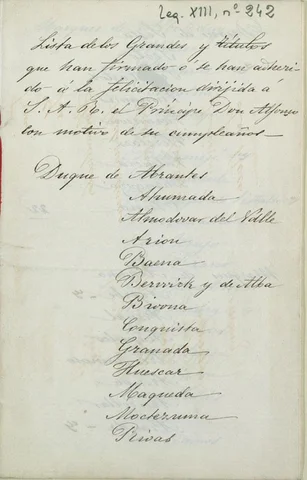 Leg. XIII, nº 242
Lista de los Grandes, y títulos
que han firmado o se han adheri-
do á la felicitacion dirijida á
S. A. R. el Príncipe Don Alfonso
con motivo de su cumpleaños—
Duque de Abrantes
Ahumada
Almodovar del Valle
Arion
Baena
Berwick y de Alba
Bivona
Conquista
Granada
Huescar
Maqueda
Moctezuma
Rivas